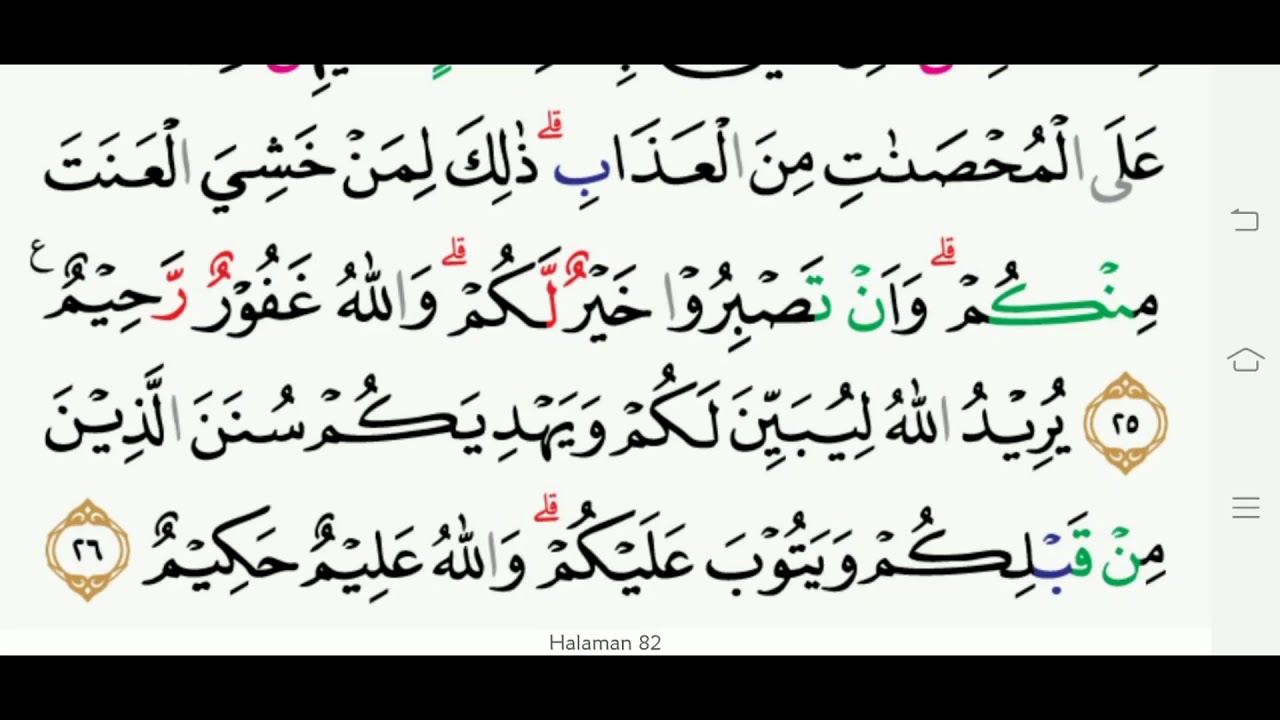 عَلَى الْمُحْصَنٰتِ مِنَ الْعَذَابِۗ ذٰلِكَ لِمَنْ خَشِيَ الْعَنَتَ
مِنْكُمْۗ وَاَنْ تَصْبِرُوْا خَيْرٌ لَّكُمْۗ وَاللّٰهُ غَفُوْرٌ رَّحِيْمٌ ع
٢٥ يُرِيْدُ اللّٰهُ لِيُبَيِّنَ لَكُمْ وَيَهْدِيَكُمْ سُنَنَ الَّذِيْنَ
مِنْ قَبْلِكُمْ وَيَتُوْبَ عَلَيْكُمْۗ وَاللّٰهُ عَلِيْمٌ حَكِيْمٌ ٢٦
Halaman 82